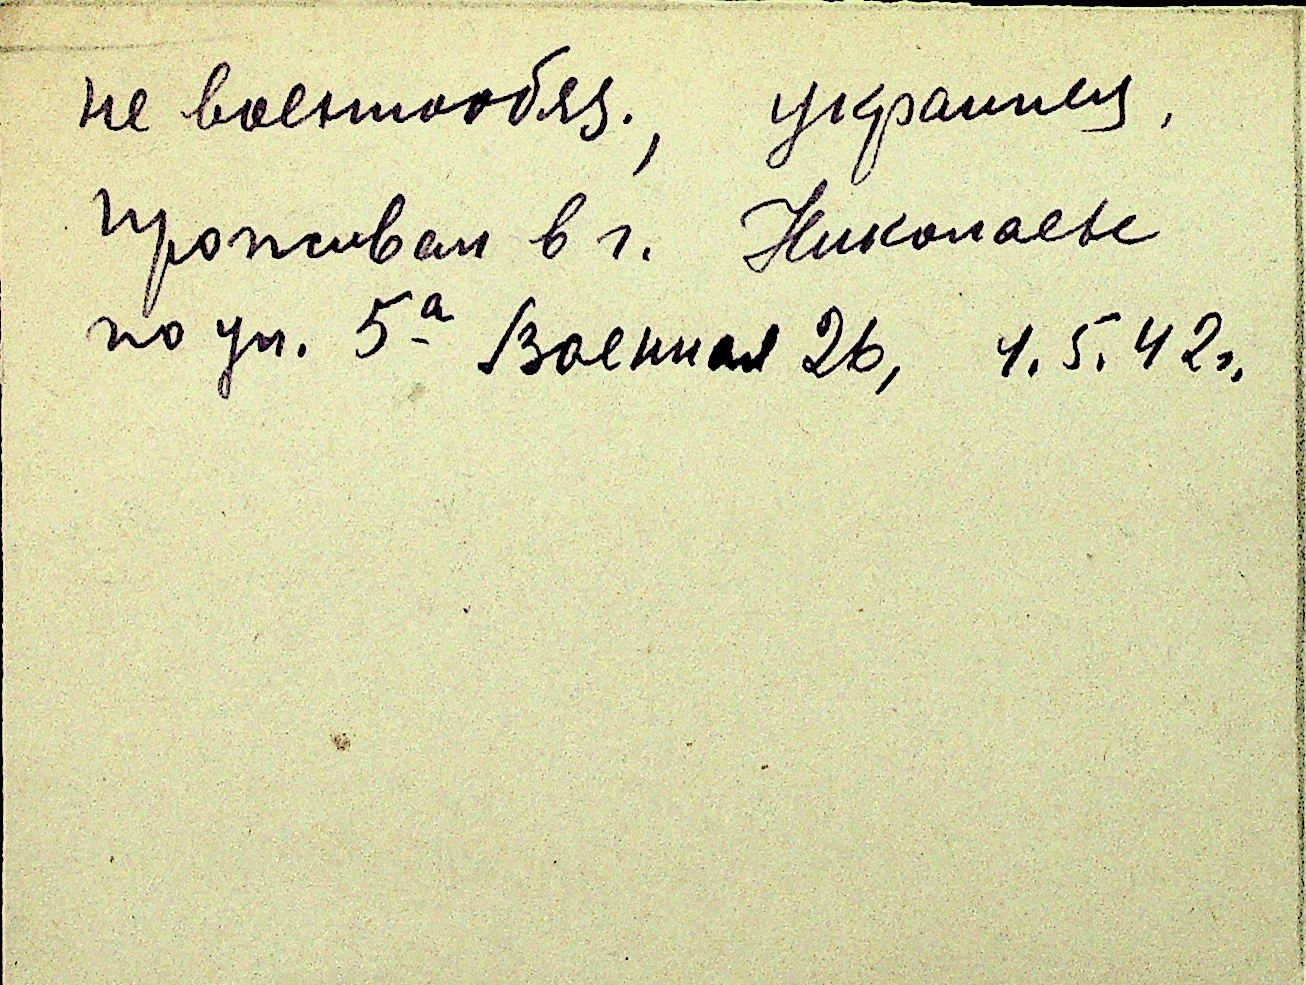 не военнообяз., украинец.
Проживал в г. Николаеве
по ул. 5а Военная 26, 1.5.42г.